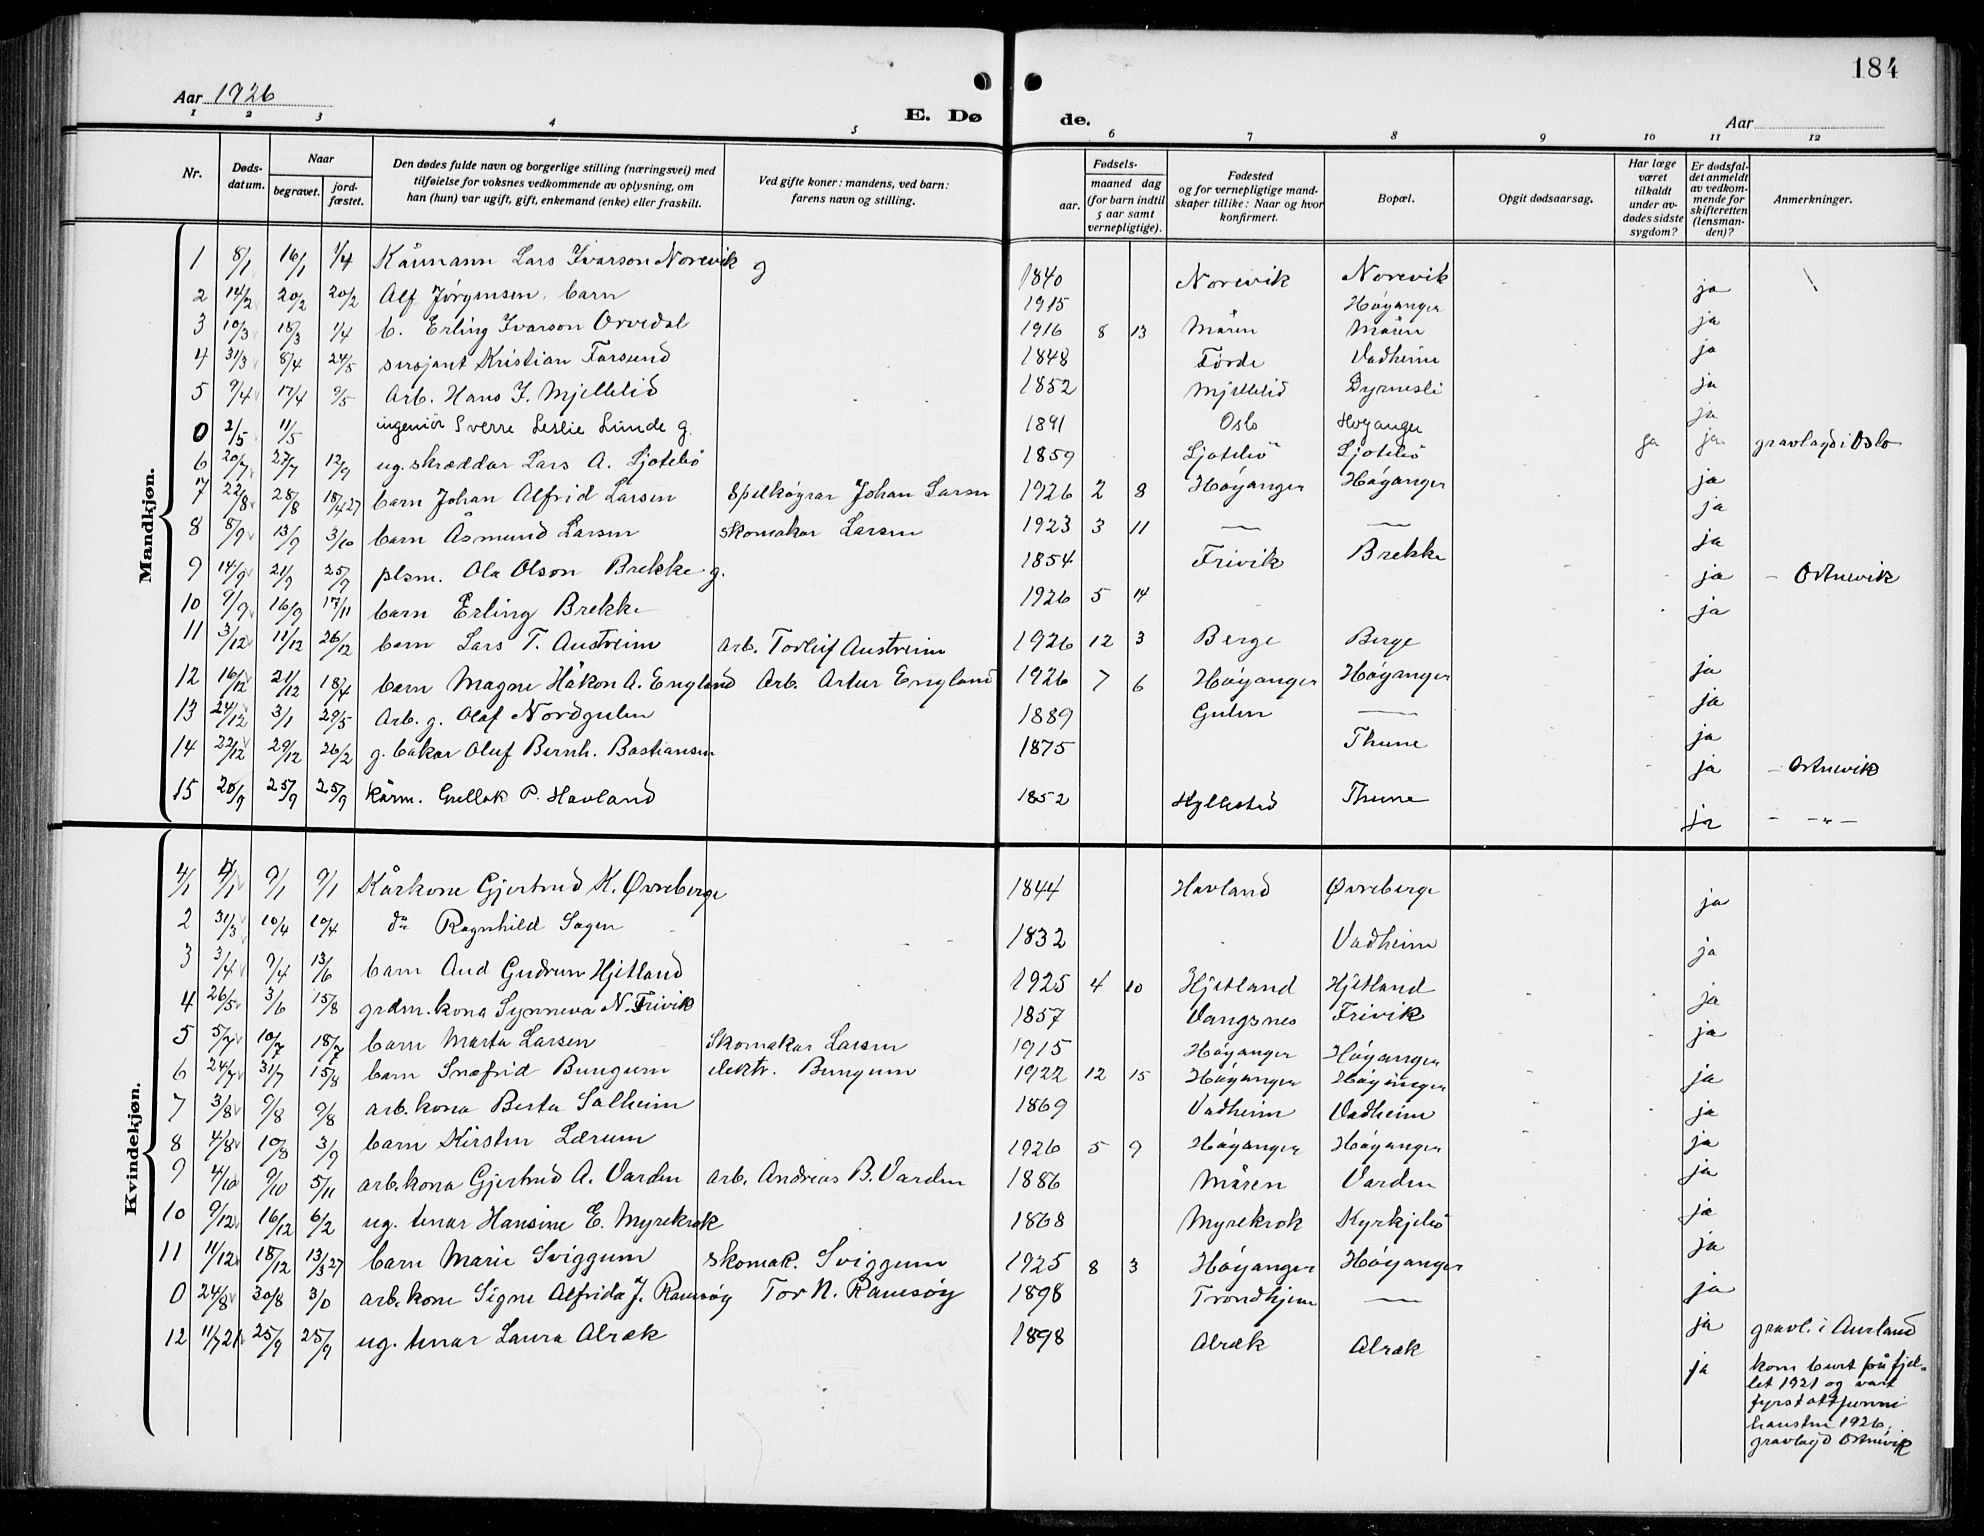 184
Aar 1926
E. Dø de.
Aar
1 2 3 4 5 6 7 8 9 10 11 12
Nr. Døds-datum. Naar begravet. jord-fæstet. Den dødes fulde navn og borgerlige stilling (næringsvei) med tilføielse for voksnes vedkommende av oplysning, om han (hun) var ugift, gift, enkemand (enke) eller fraskilt. Ved gifte koner: mandens, ved barn: farens navn og stilling. Fødsels- aar. maaned dag (for barn indtil 5 aar samt vernepligtige). Fødested og for vernepligtige mand-skaper tillike: Naar og hvor konfirmert. Bopæl. Opgit dødsaarsag. Har læge været tilkaldt under av-dødes sidste sygdom? Er dødsfal-det anmeldt av vedkom-mende for skifteretten (lensman-den)? Anmerkninger.
Mandkjøn.
1 8/1 16/1 1/4 Kårmann Lars Ivarson Norevik g 1840 Norevik Norevik ja
2 14/2 20/2 20/2 Alf Jørgensen, barn 1915 Høyanger ja
3 10/3 18/3 1/4 b. Erling Ivarson Orvedal 1916 8 13 Måren Måren ja
4 31/3 8/4 24/5 sersjant Kristian Farsund 1848 Førde Vadheim ja
5 9/4 17/4 9/5 Arb. Hans J. Mjellelid 1852 Mjellelid Dyrnesli ja
0 2/5 11/5 ingeniør Sverre Leslie Lunde g. 1891 Oslo Høyanger ja ja gravlagd i Oslo
6 20/7 27/7 12/9 ug. skræddar Lars A. Ljotebø 1859 Ljotebø Ljotebø ja
7 22/8 28/8 18/4 27 barn Johan Alfrid Larsen Spelkøyrar Johan Larsen 1926 2 8 Høyanger Høyanger ja
8 8/9 13/9 3/10 barn Åsmund Larsen skomakar Larsen 1923 3 11 — — ja
9 14/9 21/9 25/9 plsm. Ola Olson Brekke g. 1854 Frivik Brekke ja - Ortnevik
10 9/9 16/9 17/11 barn Erling Brekke 1926 5 14 ja
11 3/12 11/12 26/12 barn Lars T. Austreim arb. Torleif Austreim 1926 12 3 Berge Berge ja
12 16/12 21/12 18/4 barn Magne Håkon A. England Arb. Artur England 1926 7 6 Høyanger Høyanger ja
13 24/12 3/1 29/5 Arb. g. Olaf Nordgulen 1889 Gulen — ja
14 22/12 29/12 26/2 g. bakar Oluf Bernh. Bastiansen 1875 Thune ja - Ortnevik
15 20/9 25/9 25/9 kårm. Gullak P. Havland 1852 Hyllestad Thune ja - -"-
Kvindekjøn.
4/1 9/1 9/1 Kårkone Gjertrud K. Øvreberge 1844 Havland Øvreberge ja
2 31/3 10/4 10/4 do Ragnhild Sagen 1832 Vadheim ja
3 3/4 9/4 13/6 barn Aud Gudrun Hjetland 1925 4 10 Hjetland Hjetland ja
4 26/5 3/6 15/8 grdm. kona Synneva N. Frivik 1857 Vangsnes Frivik ja
5 5/7 10/7 18/7 barn Marta Larsen Skomakar Larsen 1915 Høyanger Høyanger
6 24/7 31/7 15/8 barn Snøfrid Bungum elektr. Bungum 1922 12 15 Høyanger Høyanger ja
7 3/8 9/8 9/8 arb. kona Berta Solheim 1869 Vadheim Vadheim ja
8 4/8 10/8 3/9 barn Kirsten Lærum 1926 5 9 Høyanger Høyanger ja
9 4/10 9/10 5/11 arb. kona Gjertrud A. Varden arb. Andreas B. Varden 1886 Måren Varden ja
10 9/12 16/12 6/2 ug. tenar Hansine E. Myrekrok 1868 Myrekrok Kyrkjebø ja
11 11/12 18/12 13/3 27 barn Marie Sviggum skomak. Sviggum 1925 8 3 Høyanger Høyanger ja
0 24/8 30/8 3/0 arb. kone Signe Alfrida J. Ramsøy Tor N. Ramsøy 1898 Trondhjem — ja gravl. i Aurland
12 11/7 21 25/9 25/9 ug. tenar Laura Alræk 1898 Alræk Alræk ja kom burt på fjel-
let 1921 og vart
fyrst attfunni
hausten 1926.
gravlagd Ortnevik